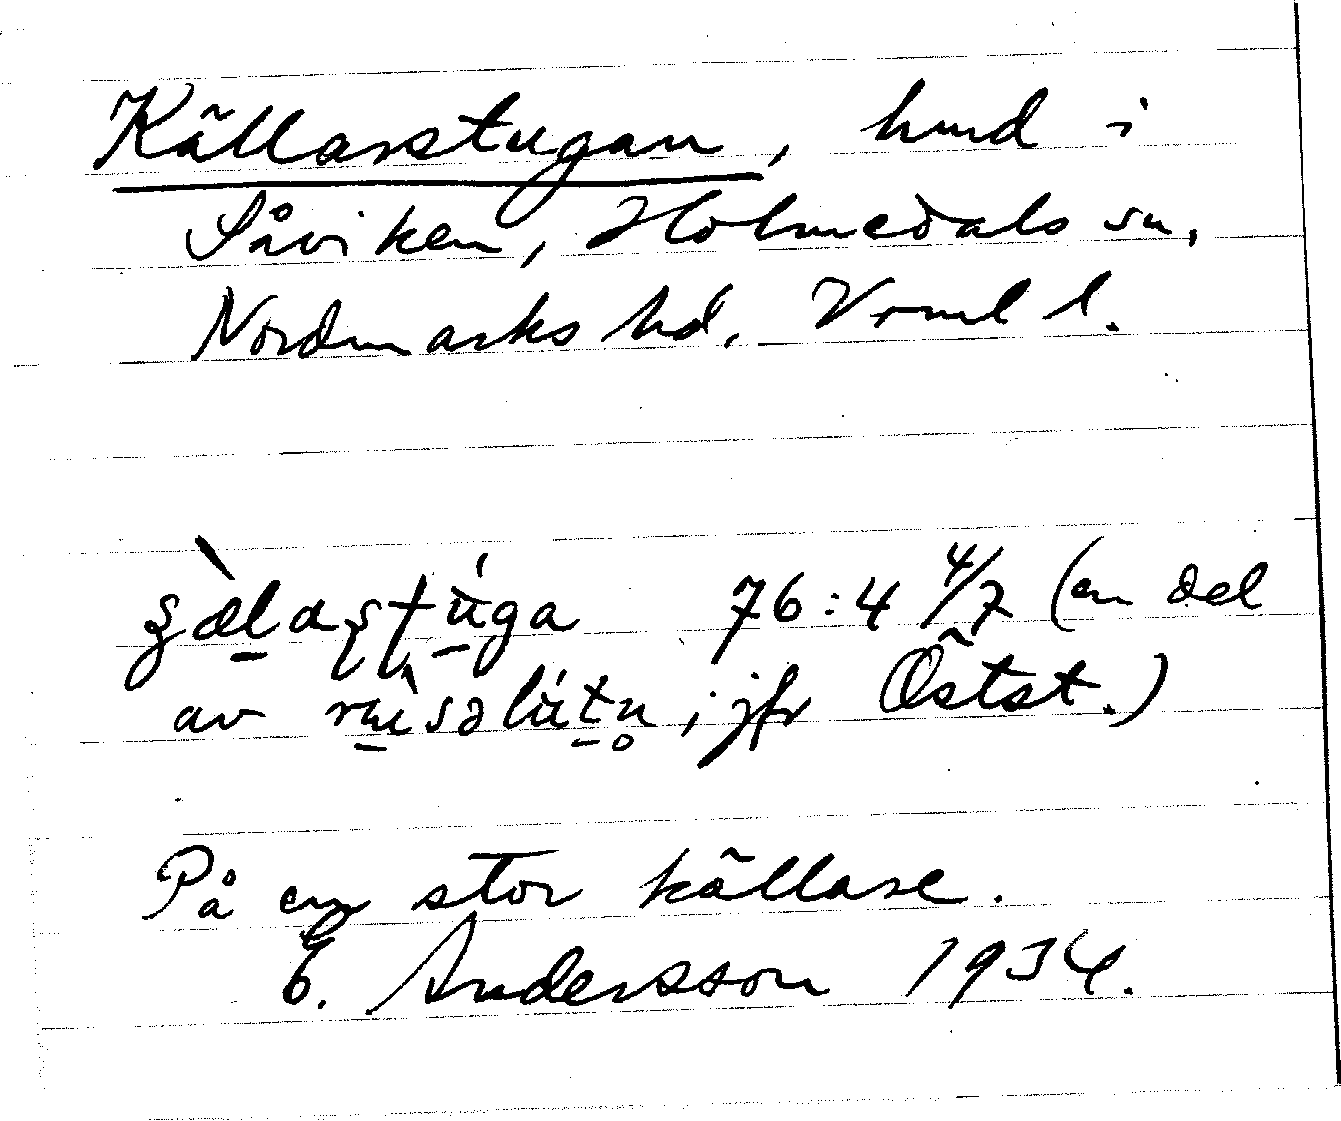 Källarstugan, hmd i
Såviken, Holmedals sn,
Nordmarks hd, Vrml l.
76:4 4/7 (en del
av ; jfr Östst.)
På en stor källare.
E. Andersson 1934.